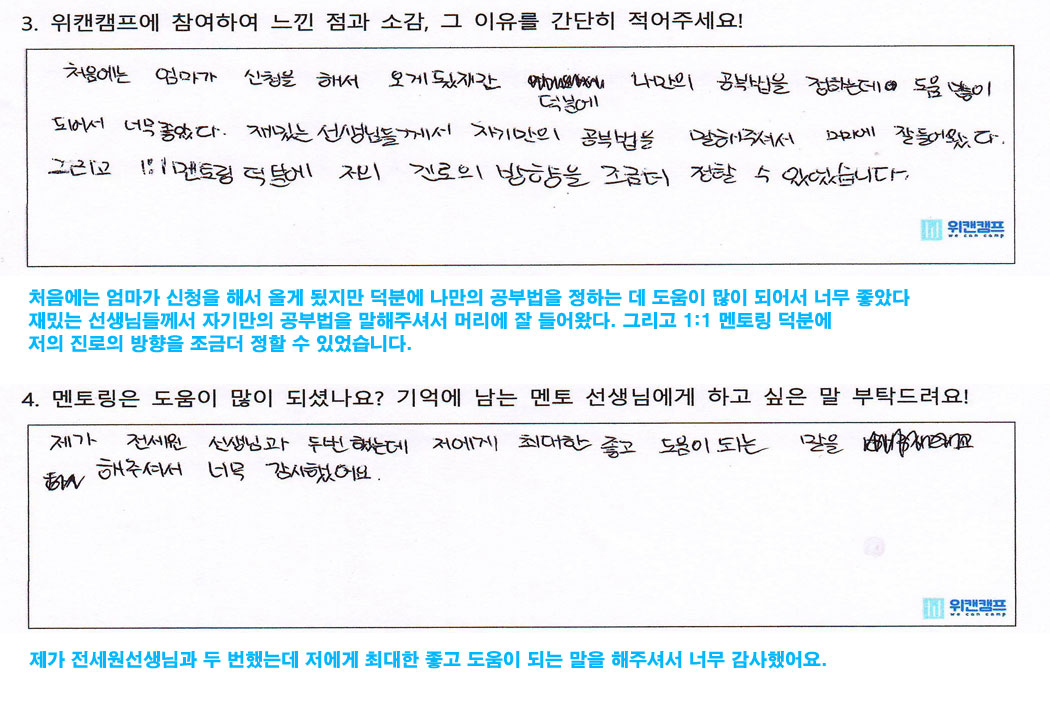 3. 위캔캠프에 참여하여 느낀 점과 소감, 그 이유를 간단히 적어주세요!
처음에는 엄마가 신청을 해서 오게 됐지만 나만의 공부법을 정하는데 도움 많이
덕분에
되어서 너무 좋았다. 재밌는 선생님들께서 자기만의 공부법을 말해주셔서 머리에 잘 들어왔다.
그리고 1:1 멘토링 덕분에 저의 진로의 방향을 조금더 정할 수 있었습니다.
위캔캠프
we can camp
처음에는 엄마가 신청을 해서 올게 됐지만 덕분에 나만의 공부법을 정하는 데 도움이 많이 되어서 너무 좋았다
재밌는 선생님들께서 자기만의 공부법을 말해주셔서 머리에 잘 들어왔다. 그리고 1:1 멘토링 덕분에
저의 진로의 방향을 조금더 정할 수 있었습니다.
4. 멘토링은 도움이 많이 되셨나요? 기억에 남는 멘토 선생님에게 하고 싶은 말 부탁드려요!
제가 전세원 선생님과 두번 했는데 저에게 최대한 좋고 도움이 되는 말을
해주셔서 너무 감사했어요.
위캔캠프
we can camp
제가 전세원선생님과 두 번했는데 저에게 최대한 좋고 도움이 되는 말을 해주셔서 너무 감사했어요.